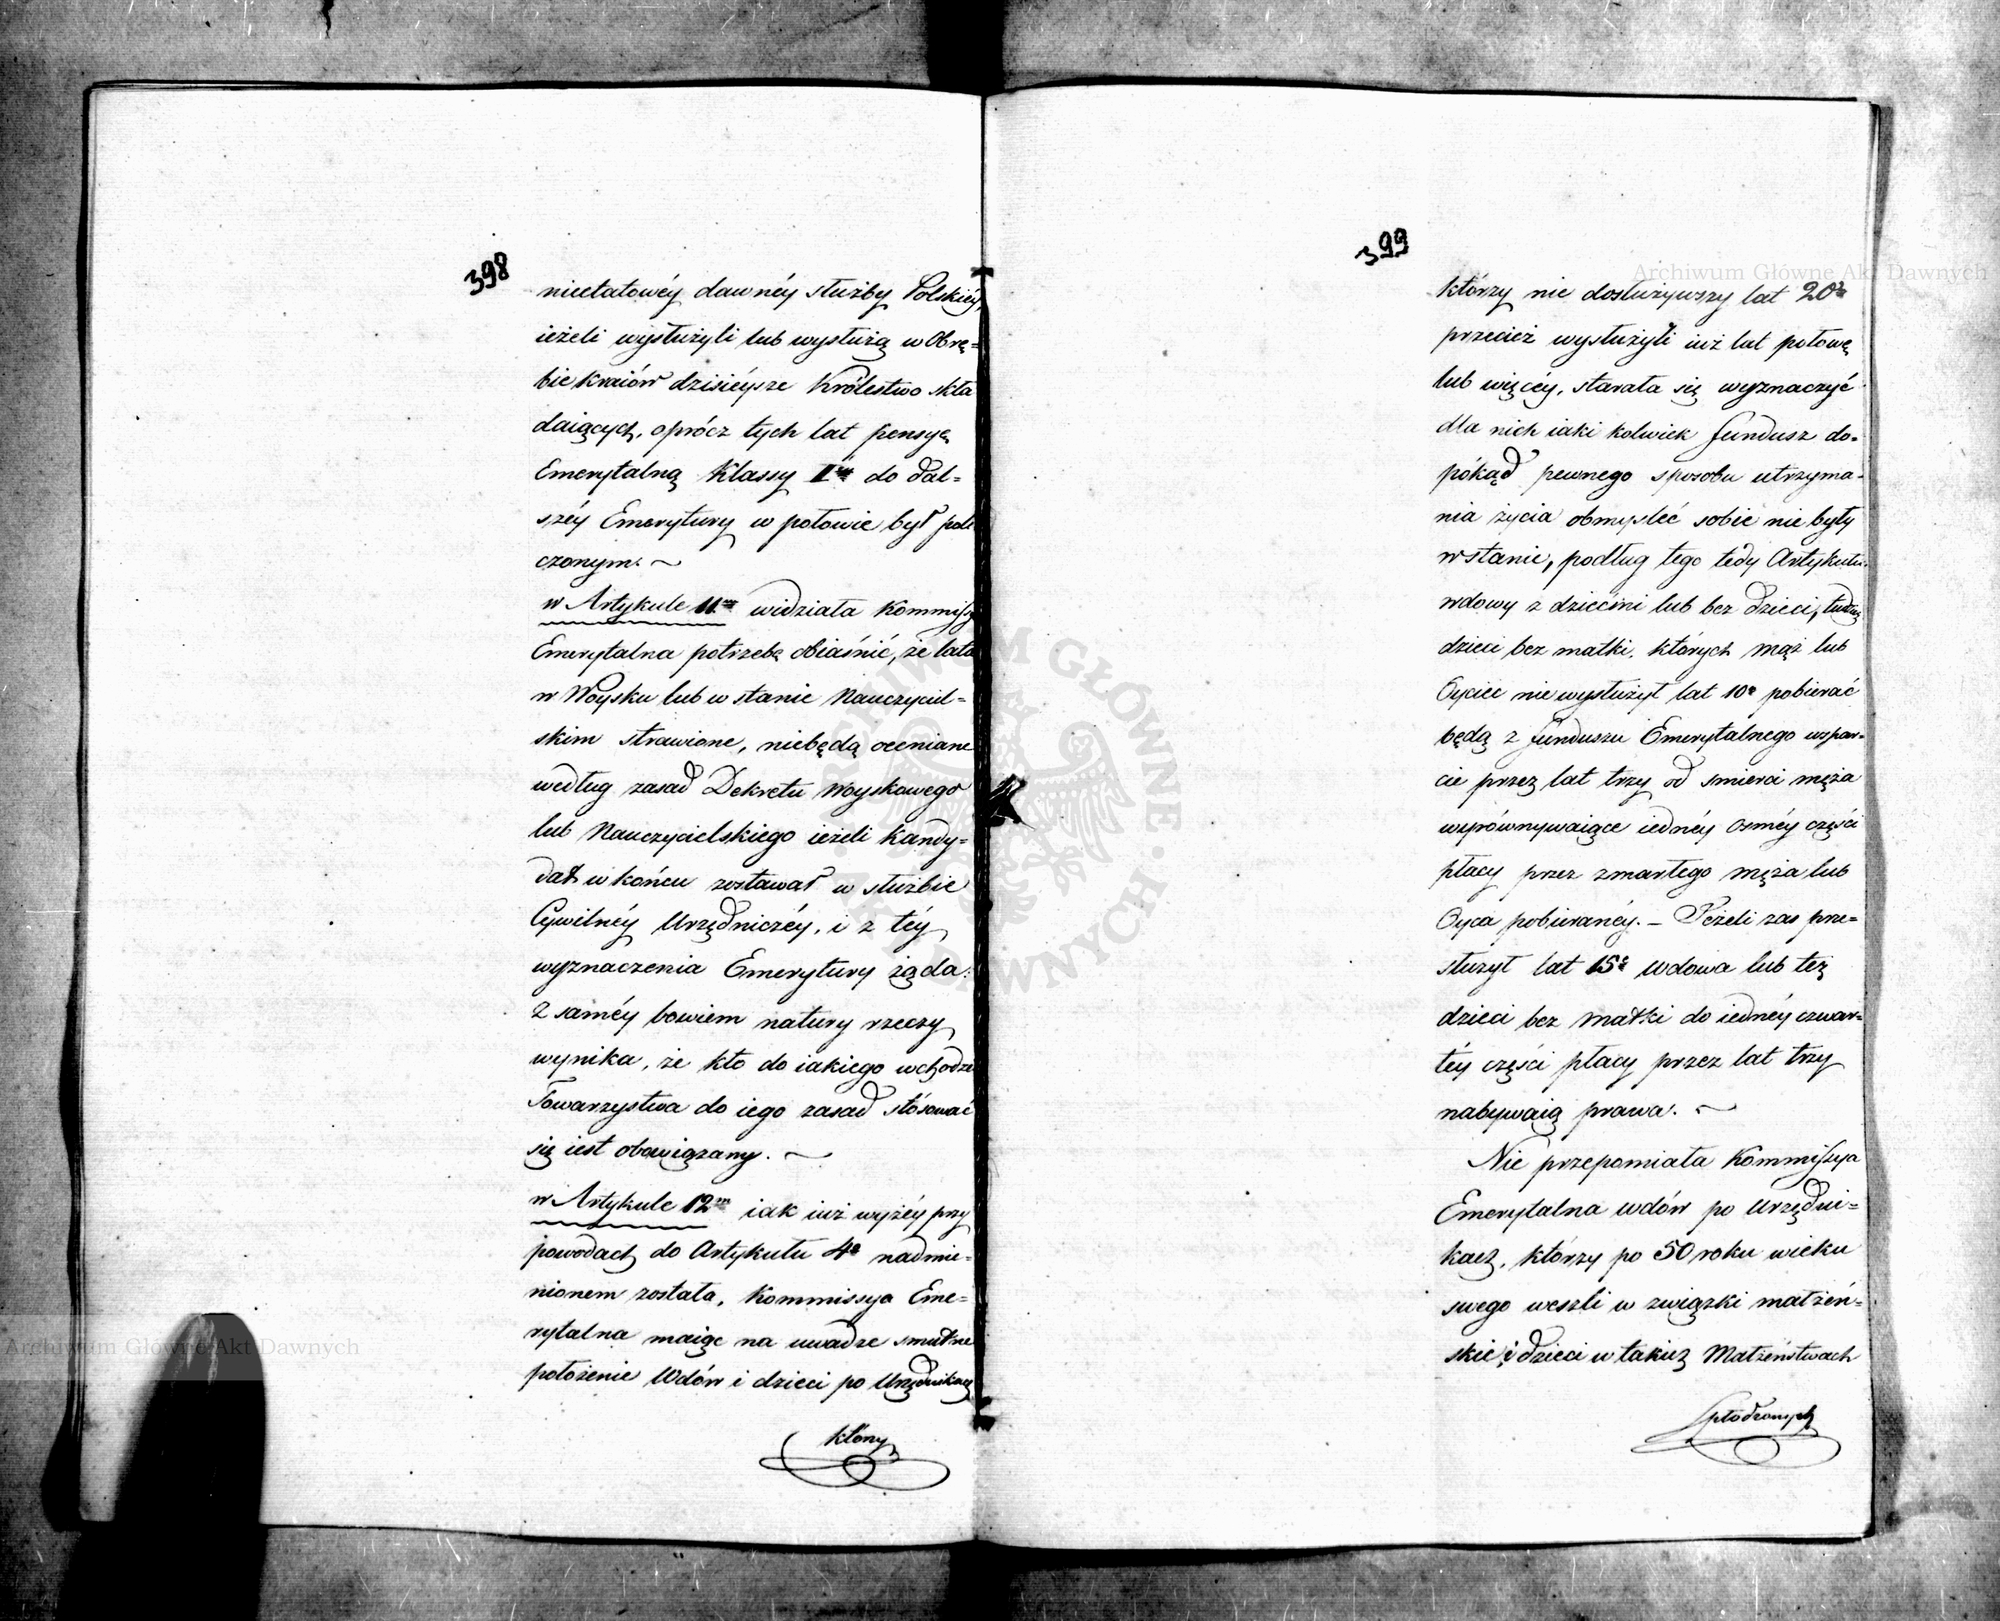 398
nieetatowéy dawnéy służby Polskiéy,
ieżeli wysłużyli lub wysłużą w Obrę=
bie kraiów dzisieysze Królestwo skła
daiących, oprócz tych lat pensyę
Emerytalną Klassy do dal=
széy Emerytury w połowie był poli
czonym. ~
w Artykule 11m widziała Kommissya
Emerytalna potrzebę obiaśnić, że lata
w Woysku lub w stanie Nauczyciel=
skim strawione, niebędą oceniane
według zasad Dekretu Woyskowego
lub Nauczycielskiego ieżeli Kandy=
dat w końcu zostawał w służbie
Cywilnéy Urzędniczéy, i z téy
wyznaczenia Emerytury żąda:
Z saméy bowiem natury rzeczy
wynika, że kto do iakiego wchodzi
Towarzystwa do iego zasad stósować
się iest obowiązany. ~
w Artykule 12m iak iuż wyżéy przy
powodach do Artykułu 4o nadmie=
nionem zostało, Kommissya Eme=
rytalna maiąc na uwadze smutne
położenie Wdów i dzieci po Urzędnikach
którzy
399
którzy nie dosłużywszy lat 20u
przecież wysłużyli iuż lat połowę
lub więcéy, starała się wyznaczyć
dla nich iaki kolwiek fundusz do=
pókąd pewnego sposobu utrzyma=
nia życia obmysleć sobie nie były
w stanie, podług tego tedy Artykułu
wdowy z dziećmi lub bez dzieci, tudzież
dzieci bez matki, których mąż lub
Oyciec nie wysłużył lat 10u pobierać
będą z funduszu Emerytalnego wspar=
cie przez lat trzy od smierci męża
wyrównywaiące iednéy osméy części
płacy przez zmarłego męża lub
Oyca pobieranéy. – Jeżeli zas prze=
służył lat 15e wdowa lub też
dzieci bez Matki do iednéy czwar=
téy części płacy przez lat trzy
nabywaią prawa. ~
Nie przepomiała Kommissya
Emerytalna wdów po Urzędni=
kach, którzy po 50 roku wieku
swego weszli w związki małżeń=
skie i dzieci w takich Małżeństwach
spłodzonych
Archiwum Główne Akt Dawnych
Archiwum Główne Akt Dawnych
ARCHIWUM GŁÓWNE AKT DAWNYCH